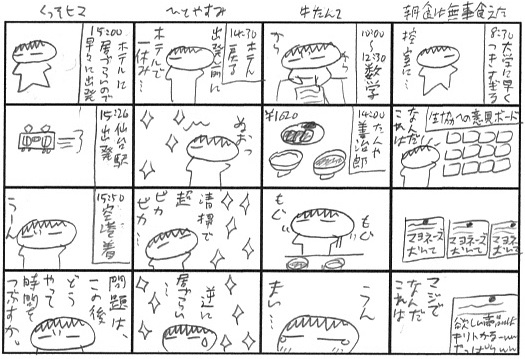 朝食は無事食えた
8:30
大学に早く
つきすぎる
控室に…
生協への意見ボード
なんだ
これは
マヨネーズ
おいて
マヨネーズ
おいて
マヨネーズ
おいて
マジで
なんだ
これは
欲しい声
牛たんて
10:00
〜
12:30
数学
から
から
14:00
たんや
善治郎
¥1620
もぐ
もぐ
うん
まい…
ひとやすみ
14:30
ホテル
戻る
出発前に
ホテルで
一休み…
ぬおっ
清掃で
超
ピカ
ピカ…
逆に
居づらい…
くっそヒマ
15:00
ホテルに
居づらいので
早々に出発
15:26
仙台駅
出発
15:50
空港着
うーん
問題は、
この後
どう
やって
時間を
つぶすか。